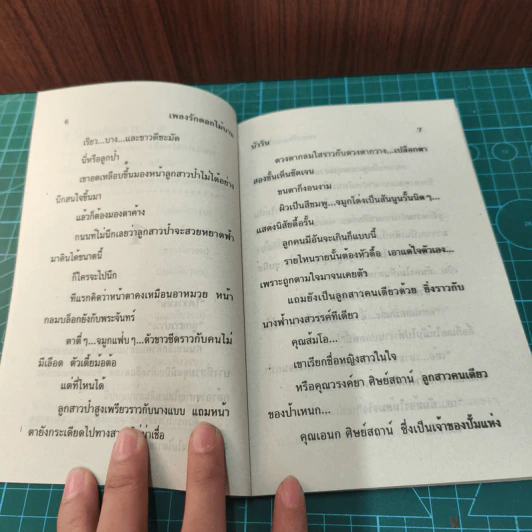 6
เพลงรักดอกไม้บาน
เรียว...บาง...และขาวดีชะมัด
นี่หรือลูกป้ำ
เขาอดเหลือบขึ้นมองหน้าลูกสาวป้ำไม่ได้อย่าง
นึกสนใจขึ้นมา
แล้วก็ต้องมองตาค้าง
ถนนทไม่นึกเลยว่าลูกสาวป้ำจะสวยหยาดฟ้า
มาดินได้ขนาดนี้
ก็ใครจะไปนึก
ทีแรกคิดว่าหน้าตาคงเหมือนอาหมวย หน้า
กลมบล็อกยังกับพระจันทร์
ตาตี่ๆ...จมูกแฟบๆ...ตัวขาวซีดราวกับคนไม่
มีเลือด ตัวเตี้ยม้อต้อ
แต่ที่ไหนได้
ลูกสาวป้ำสูงเพรียวราวกับนางแบบ แถมหน้า
ตายังกระเดียดไปทาง
น่าเชื่อ
นัาริน
7
ดวงตากลมใสราวกับดวงตากวาง...เปลือกตา
สองชั้นเห็นชัดเจน
ขนตาก็งอนงาม
ผิวเป็นสีชมพู...จมูกโด่งเป็นสันนูนรั้นนิดๆ...
แสดงนิสัยดื้อรั้น
ลูกคนมีอันจะเกินก็แบบนี้
รายไหนรายนั้นต้องหัวดื้อ เอาแต่ใจตัวเอง...
เพราะถูกตามใจมาจนเคยตัว
แถมยังเป็นลูกสาวคนเดียวด้วย ยิ่งราวกับ
นางฟ้านางสวรรค์ทีเดียว
คุณส้มโอ...
เขาเรียกชื่อหญิงสาวในใจ
หรือคุณวรงค์ยา ศิษย์สถาน์ ลูกสาวคนเดียว
ของป้ำเหนก...
คุณเอนก ศิษย์สถาน์ ซึ่งเป็นเจ้าของปั๊มแห่ง